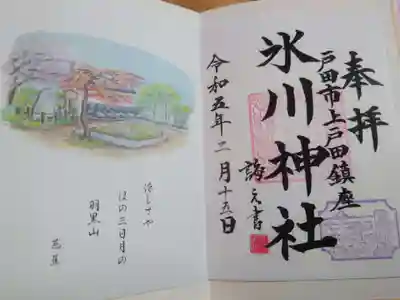 奉拝
戸田市上戸田鎮座
氷川神社
令和五年二月十五日
涼しさや
ほの三日月の
羽黒山
芭蕉